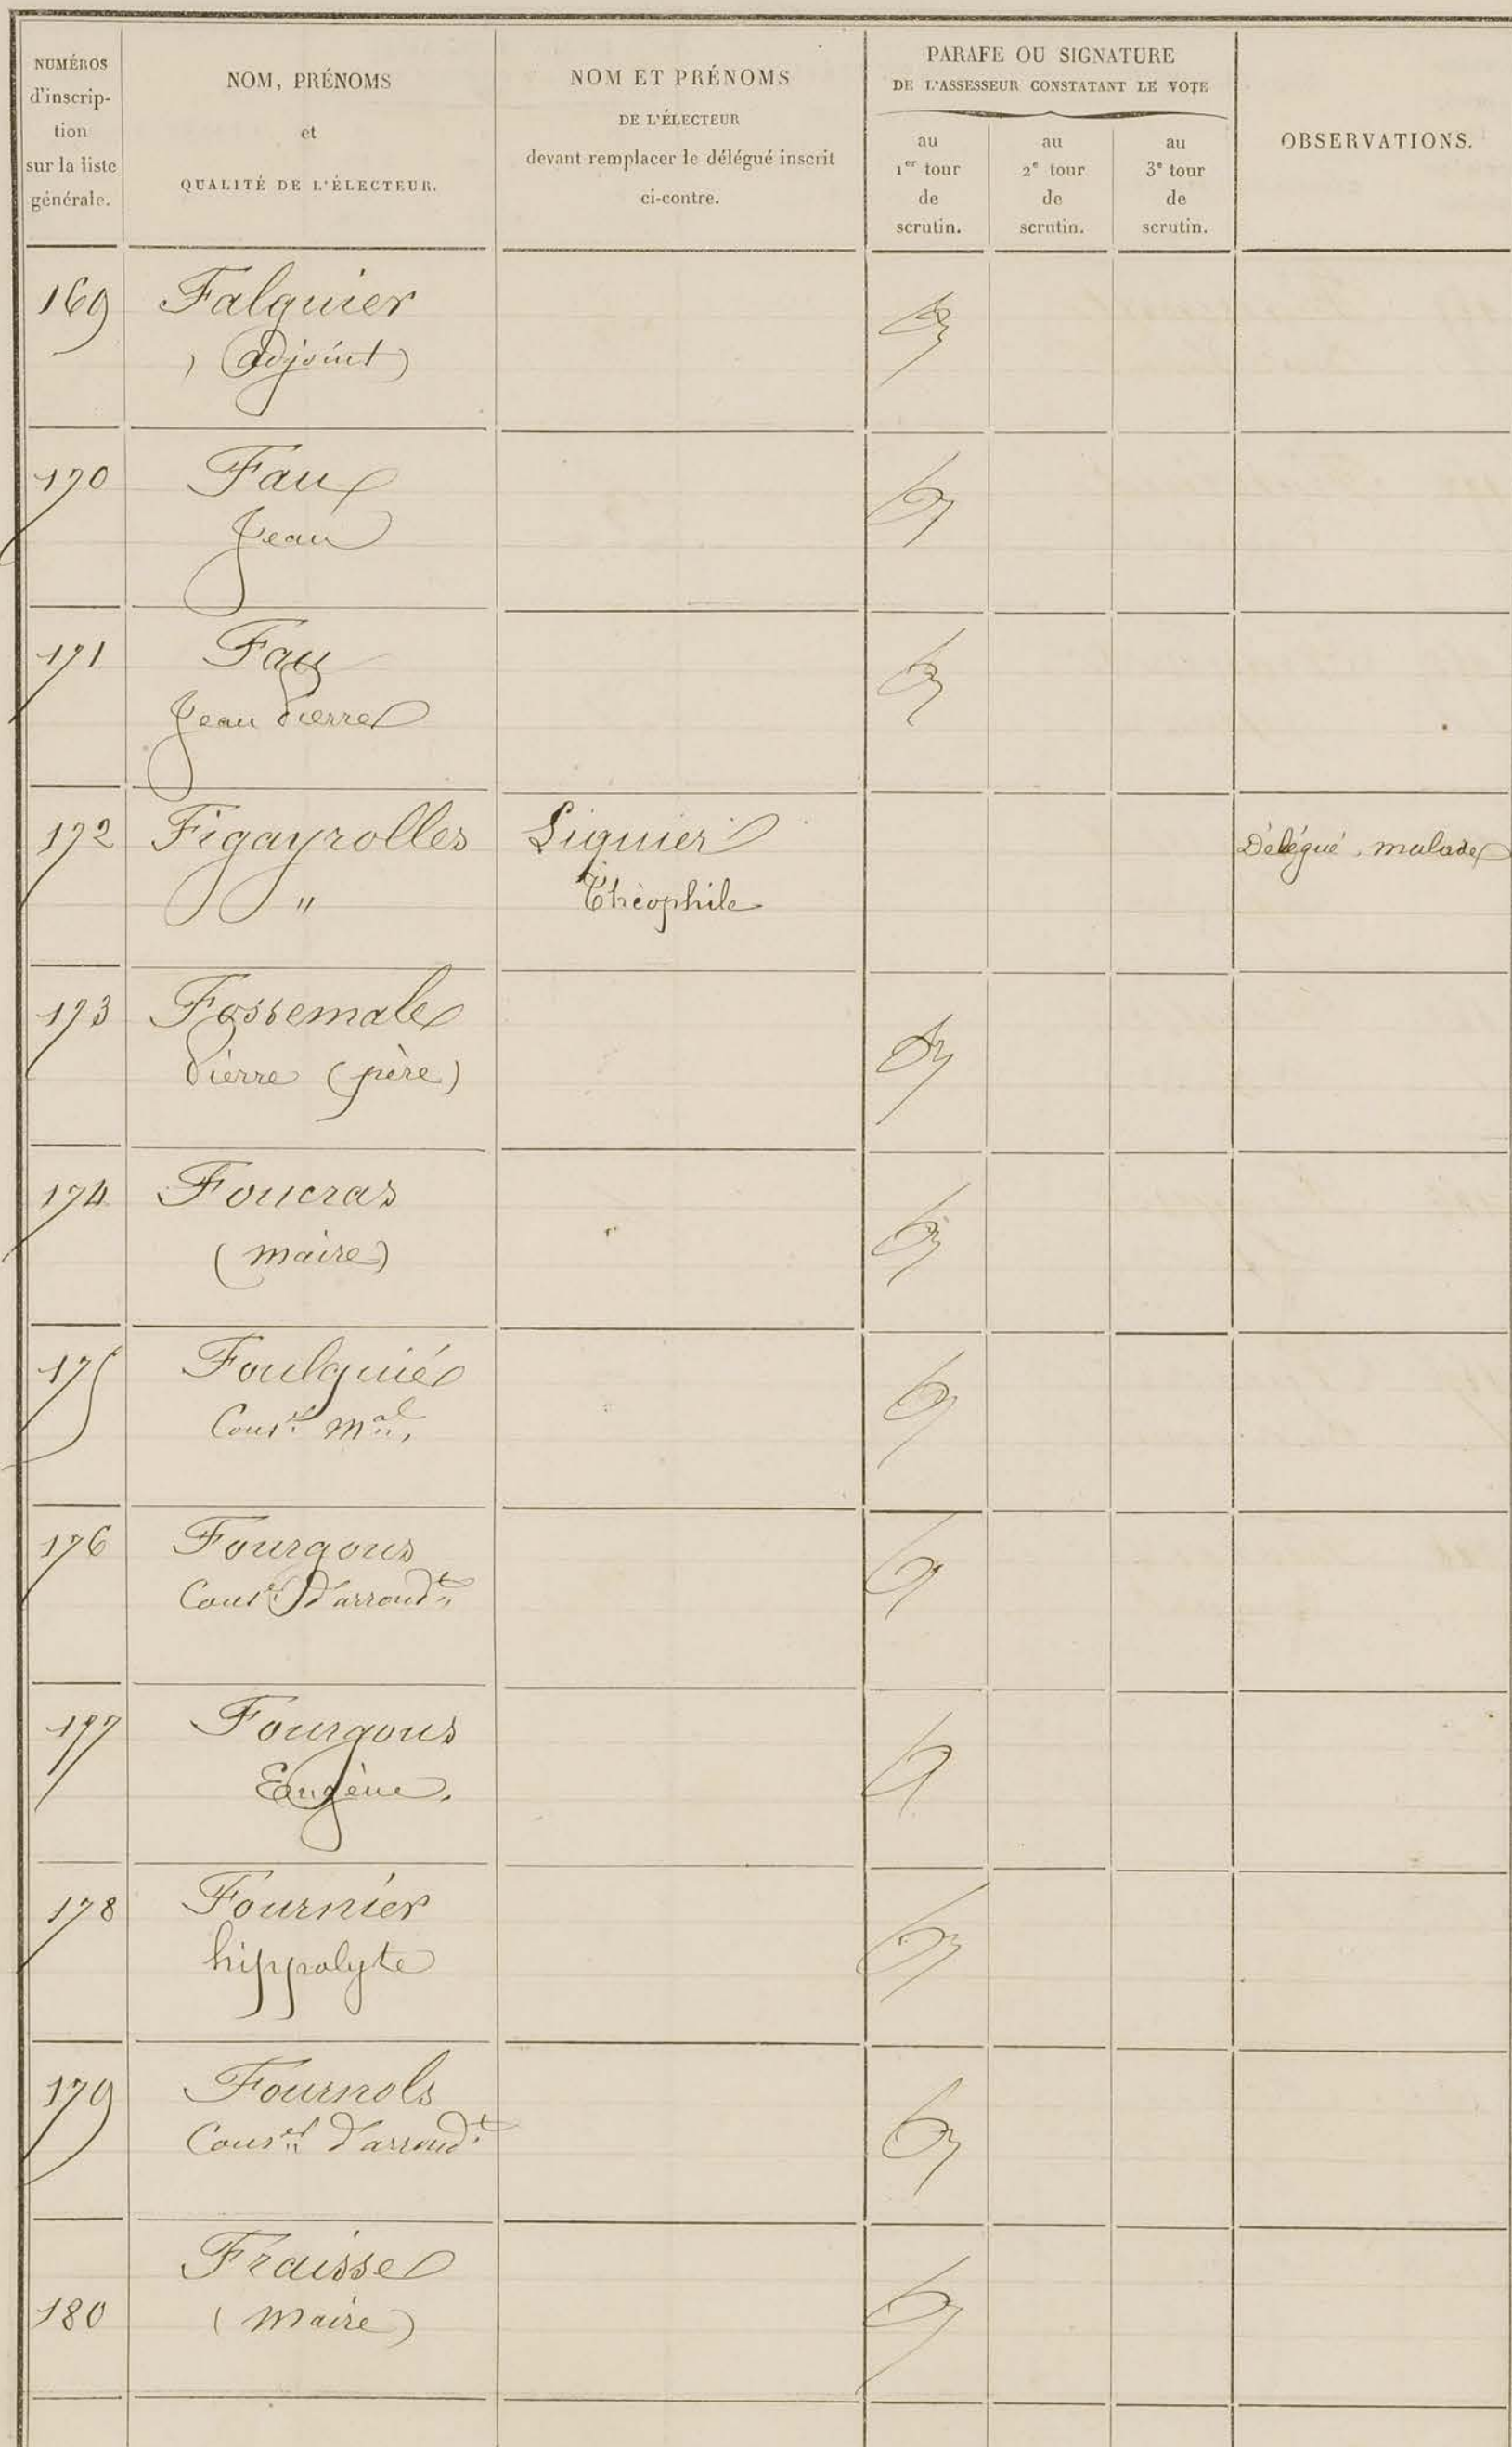 NUMÉROS
d'inscrip-
tion
sur la liste
générale.
NOM, PRÉNOMS
et
QUALITÉ DE L'ÉLECTEUR.
NOM ET PRÉNOMS
DE L'ÉLECTEUR
devant remplacer le délégué inscrit
ci-contre.
PARAFE OU SIGNATURE
DE L'ASSESSEUR CONSTATANT LE VOTE
au
1er tour
de
scrutin.
au
2e tour
de
scrutin.
au
3e tour
de
scrutin.
OBSERVATIONS.
169 Falguier
(adjoint)
170 Fau
Jean
171 Fau
Jean Pierre
172 Figayrolles Liquier Délégué malade
" Théophile
173 Fossemale
Pierre (père)
174 Foucras
(maire)
175 Foulquié
Conser mal,
176 Fourgous
Conser d'arrondt
177 Fourgous
Eugène.
178 Fournier
hippolyte
179 Fournols
Conser d'arrondt
Fraisse
180 (Maire)